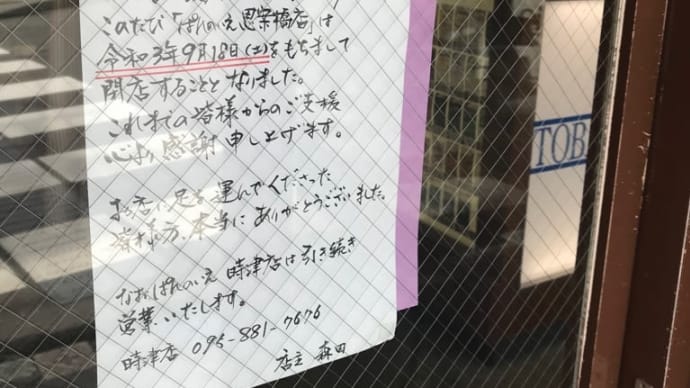 このたび「ぱんのいえ思案橋店」は
令和3年9月18日(土)をもちまして
閉店することとなりました。
これまでの皆様からのご支援
心より感謝申し上げます。
お店に足を運んでくださった
皆様方、本当にありがとうございました。
なおぱんのいえ 時津店は引き続き
営業いたします。
時津店 095-881-7676
店主 森田
TOB